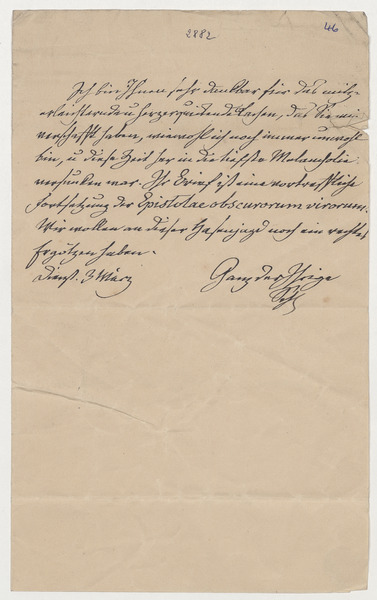 2882
46
Ich bin Ihnen sehr dankbar für das
erleichternde u herzerquickende Lachen, das Sie mir
verschafft haben, wiewohl ich noch immer unwohl
bin, u diese Zeit her in die tiefste Melancholie
versunken war. Ihr Brief ist eine vortreffliche
Fortsetzung der Epistolae obscurorum virorum.
Wir wollen an dieser Hasenjagd noch ein rechtes
Ergötzen haben.
Dienst. 3 März
Ganz der Ihrige
Schl